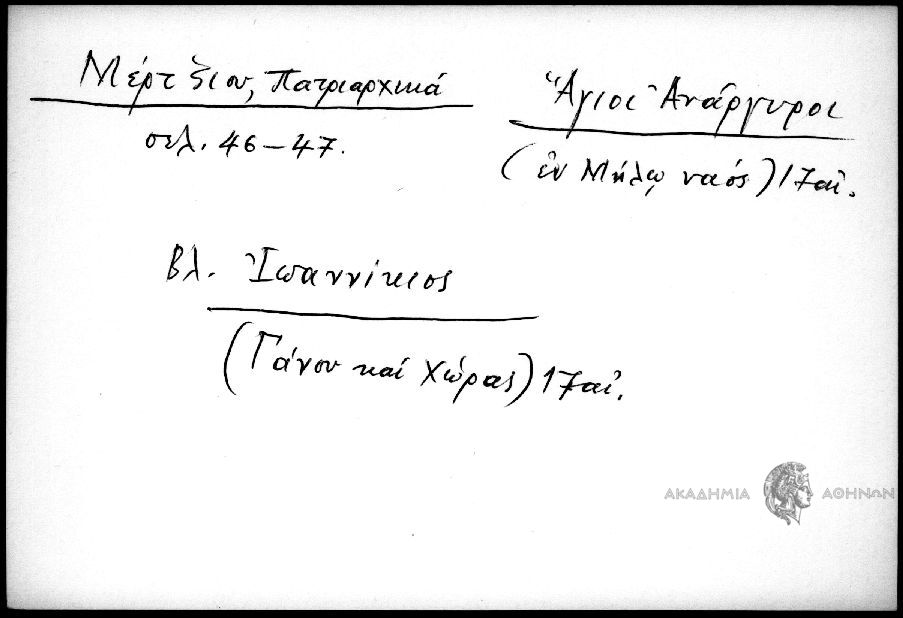 Μέρτζιου, Πατριαρχικά
σελ. 46–47.
Ἅγιοι Ἀνάργυροι
(ἐν Μήλῳ ναός) 17 αἰ.
Βλ. Ἰωαννίκιος
(Γάνου καί Χώρας) 17 αἰ.
ΑΚΑΔΗΜΙΑ ΑΘΗΝΩΝ